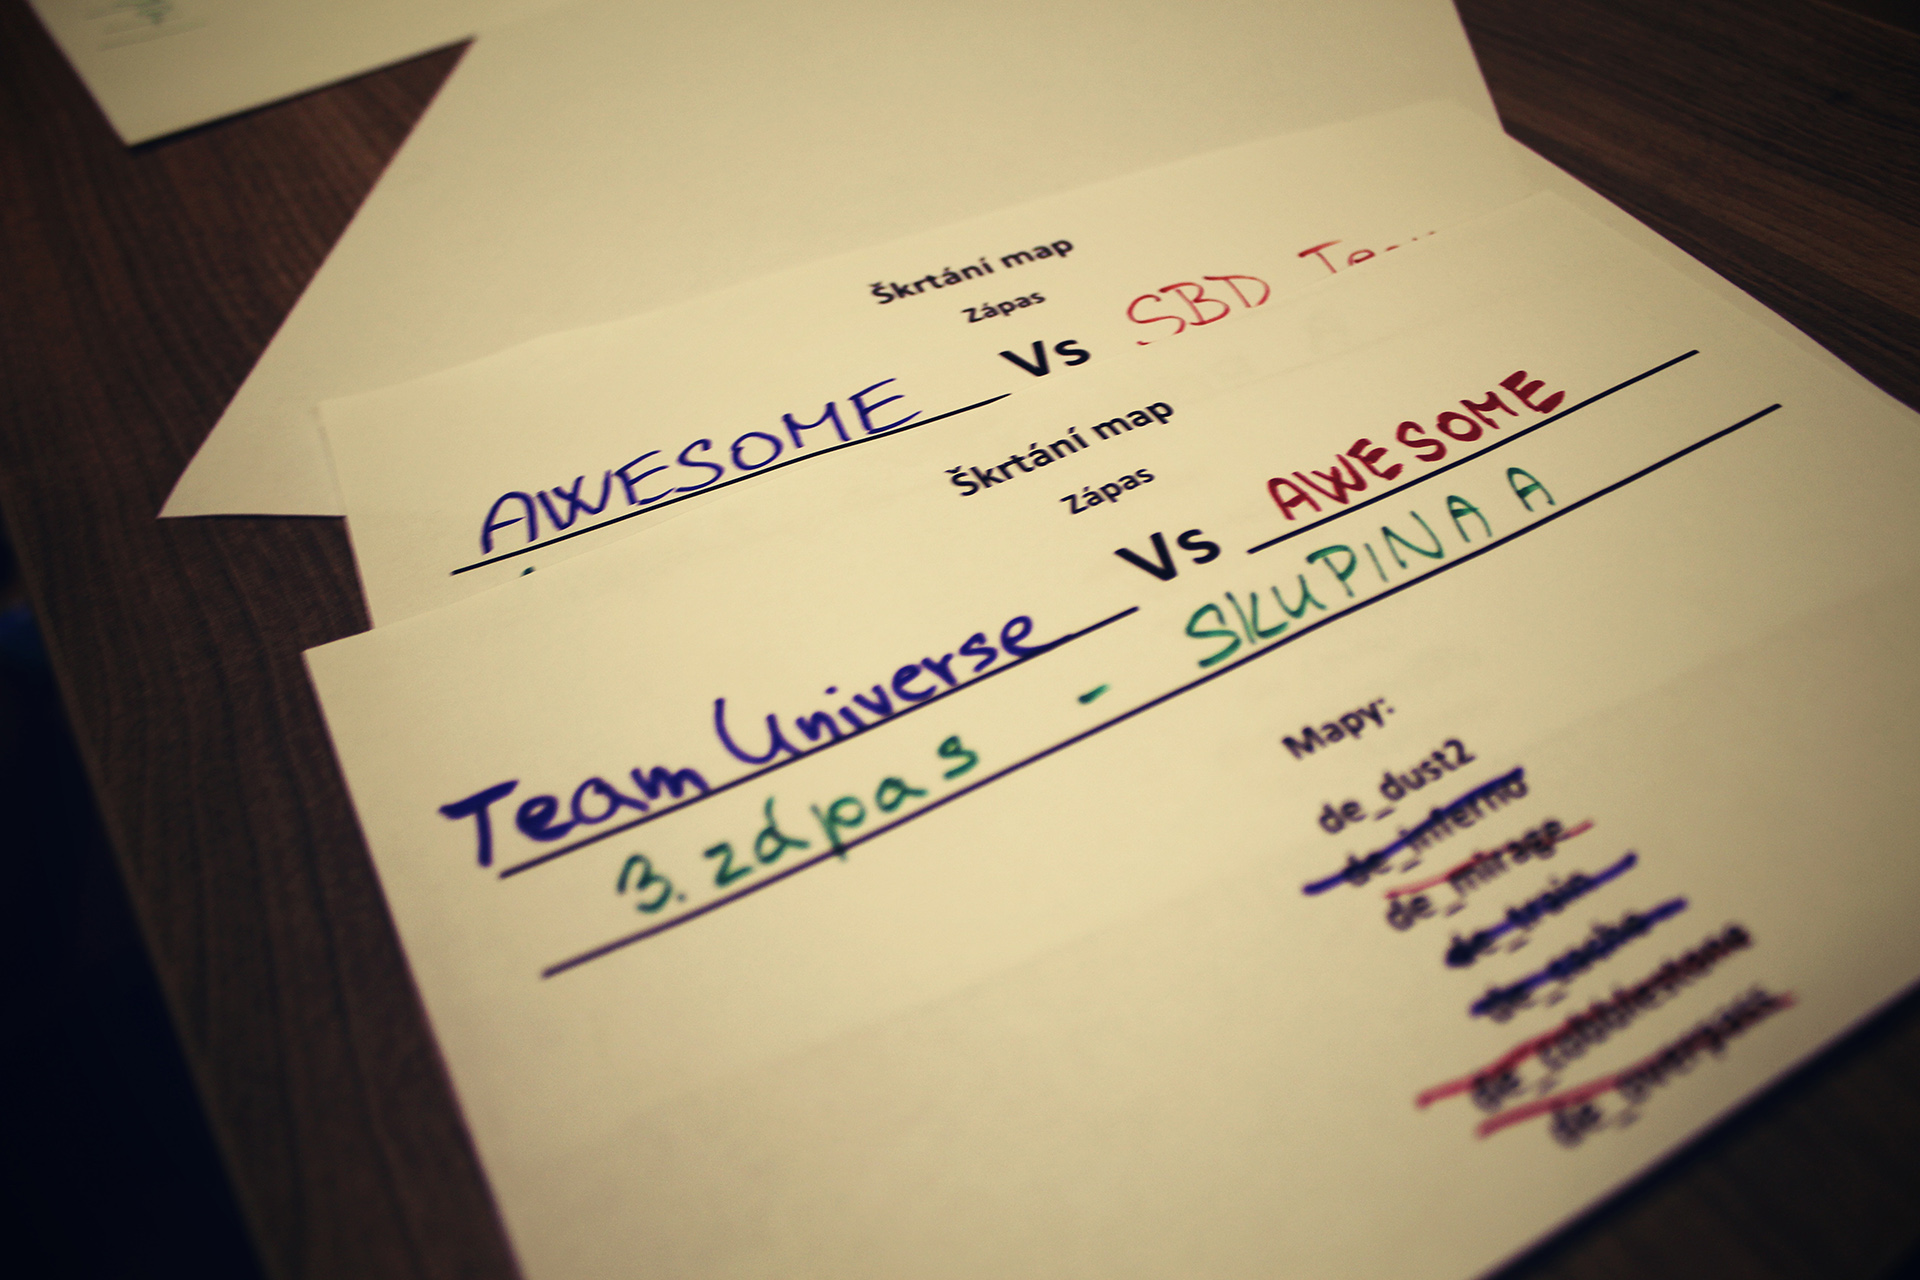 Škrtání map
Zápas
AWESOME Vs SBD
Škrtání map
Zápas
Team Universe Vs AWESOME
3. zápas - SKUPINA A
Mapy:
de_dust2
de_inferno
de_mirage
de_train
de_cache
de_cobblestone
de_overpass